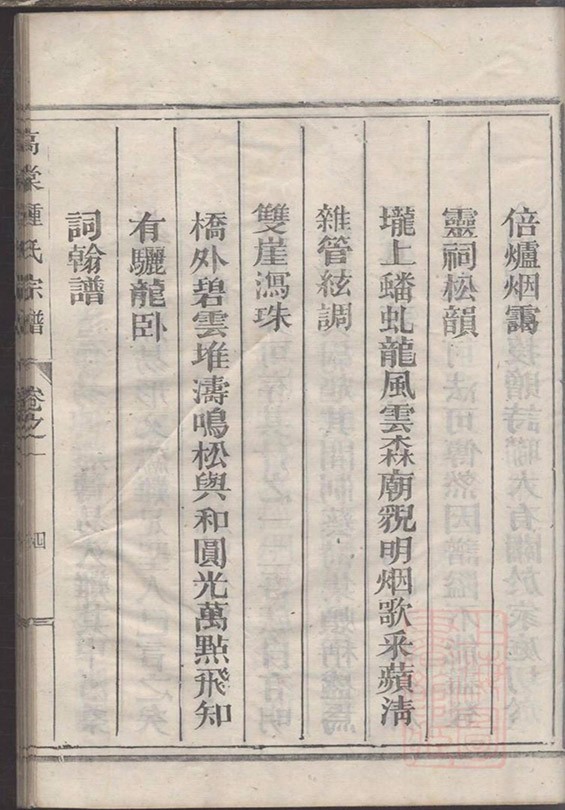 倍爐烟靄
靈祠松韻
壠上蟠虬龍風雲森廟貌明烟歌采蘋清
雜管絃調
雙崖瀉珠
橋外碧雲堆濤鳴松與和圓光萬點飛知
有驪龍卧
詞翰譜
高棠鍾氏宗譜 卷之 四